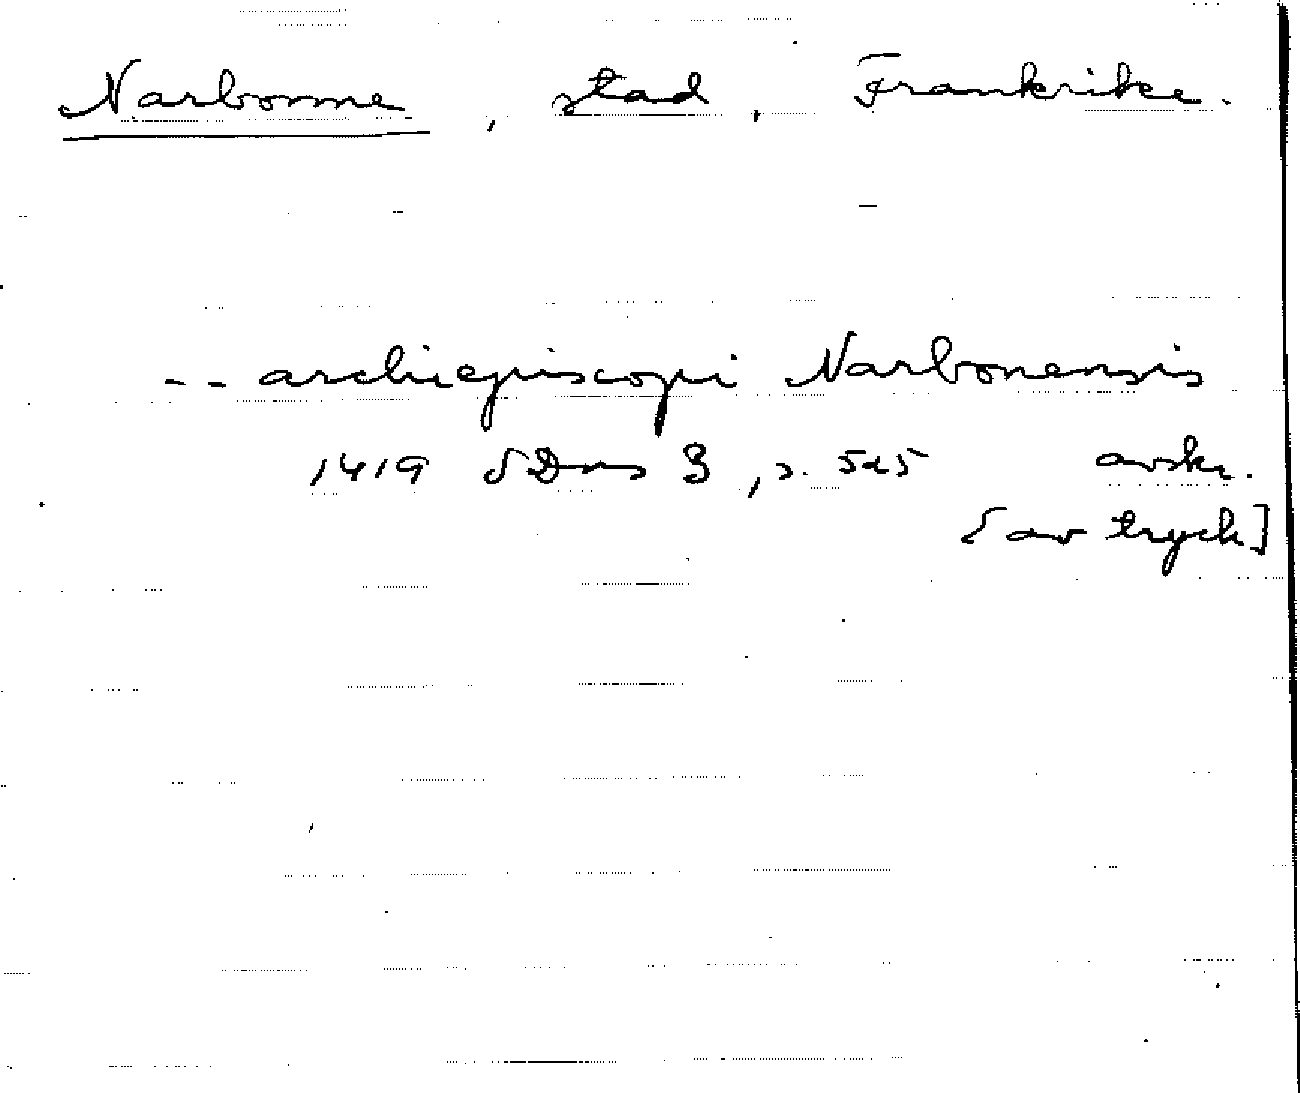 Narbonne, stad, Frankrike.
-- archiepiscopi Narbonensis
1419 SDns 3, s. 525 avskr.
[av tryck]